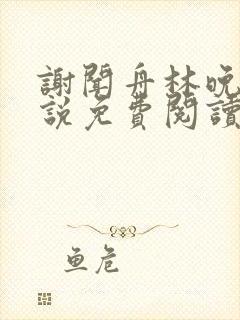 謝聞舟林晚
說免費閱讀
鱼危